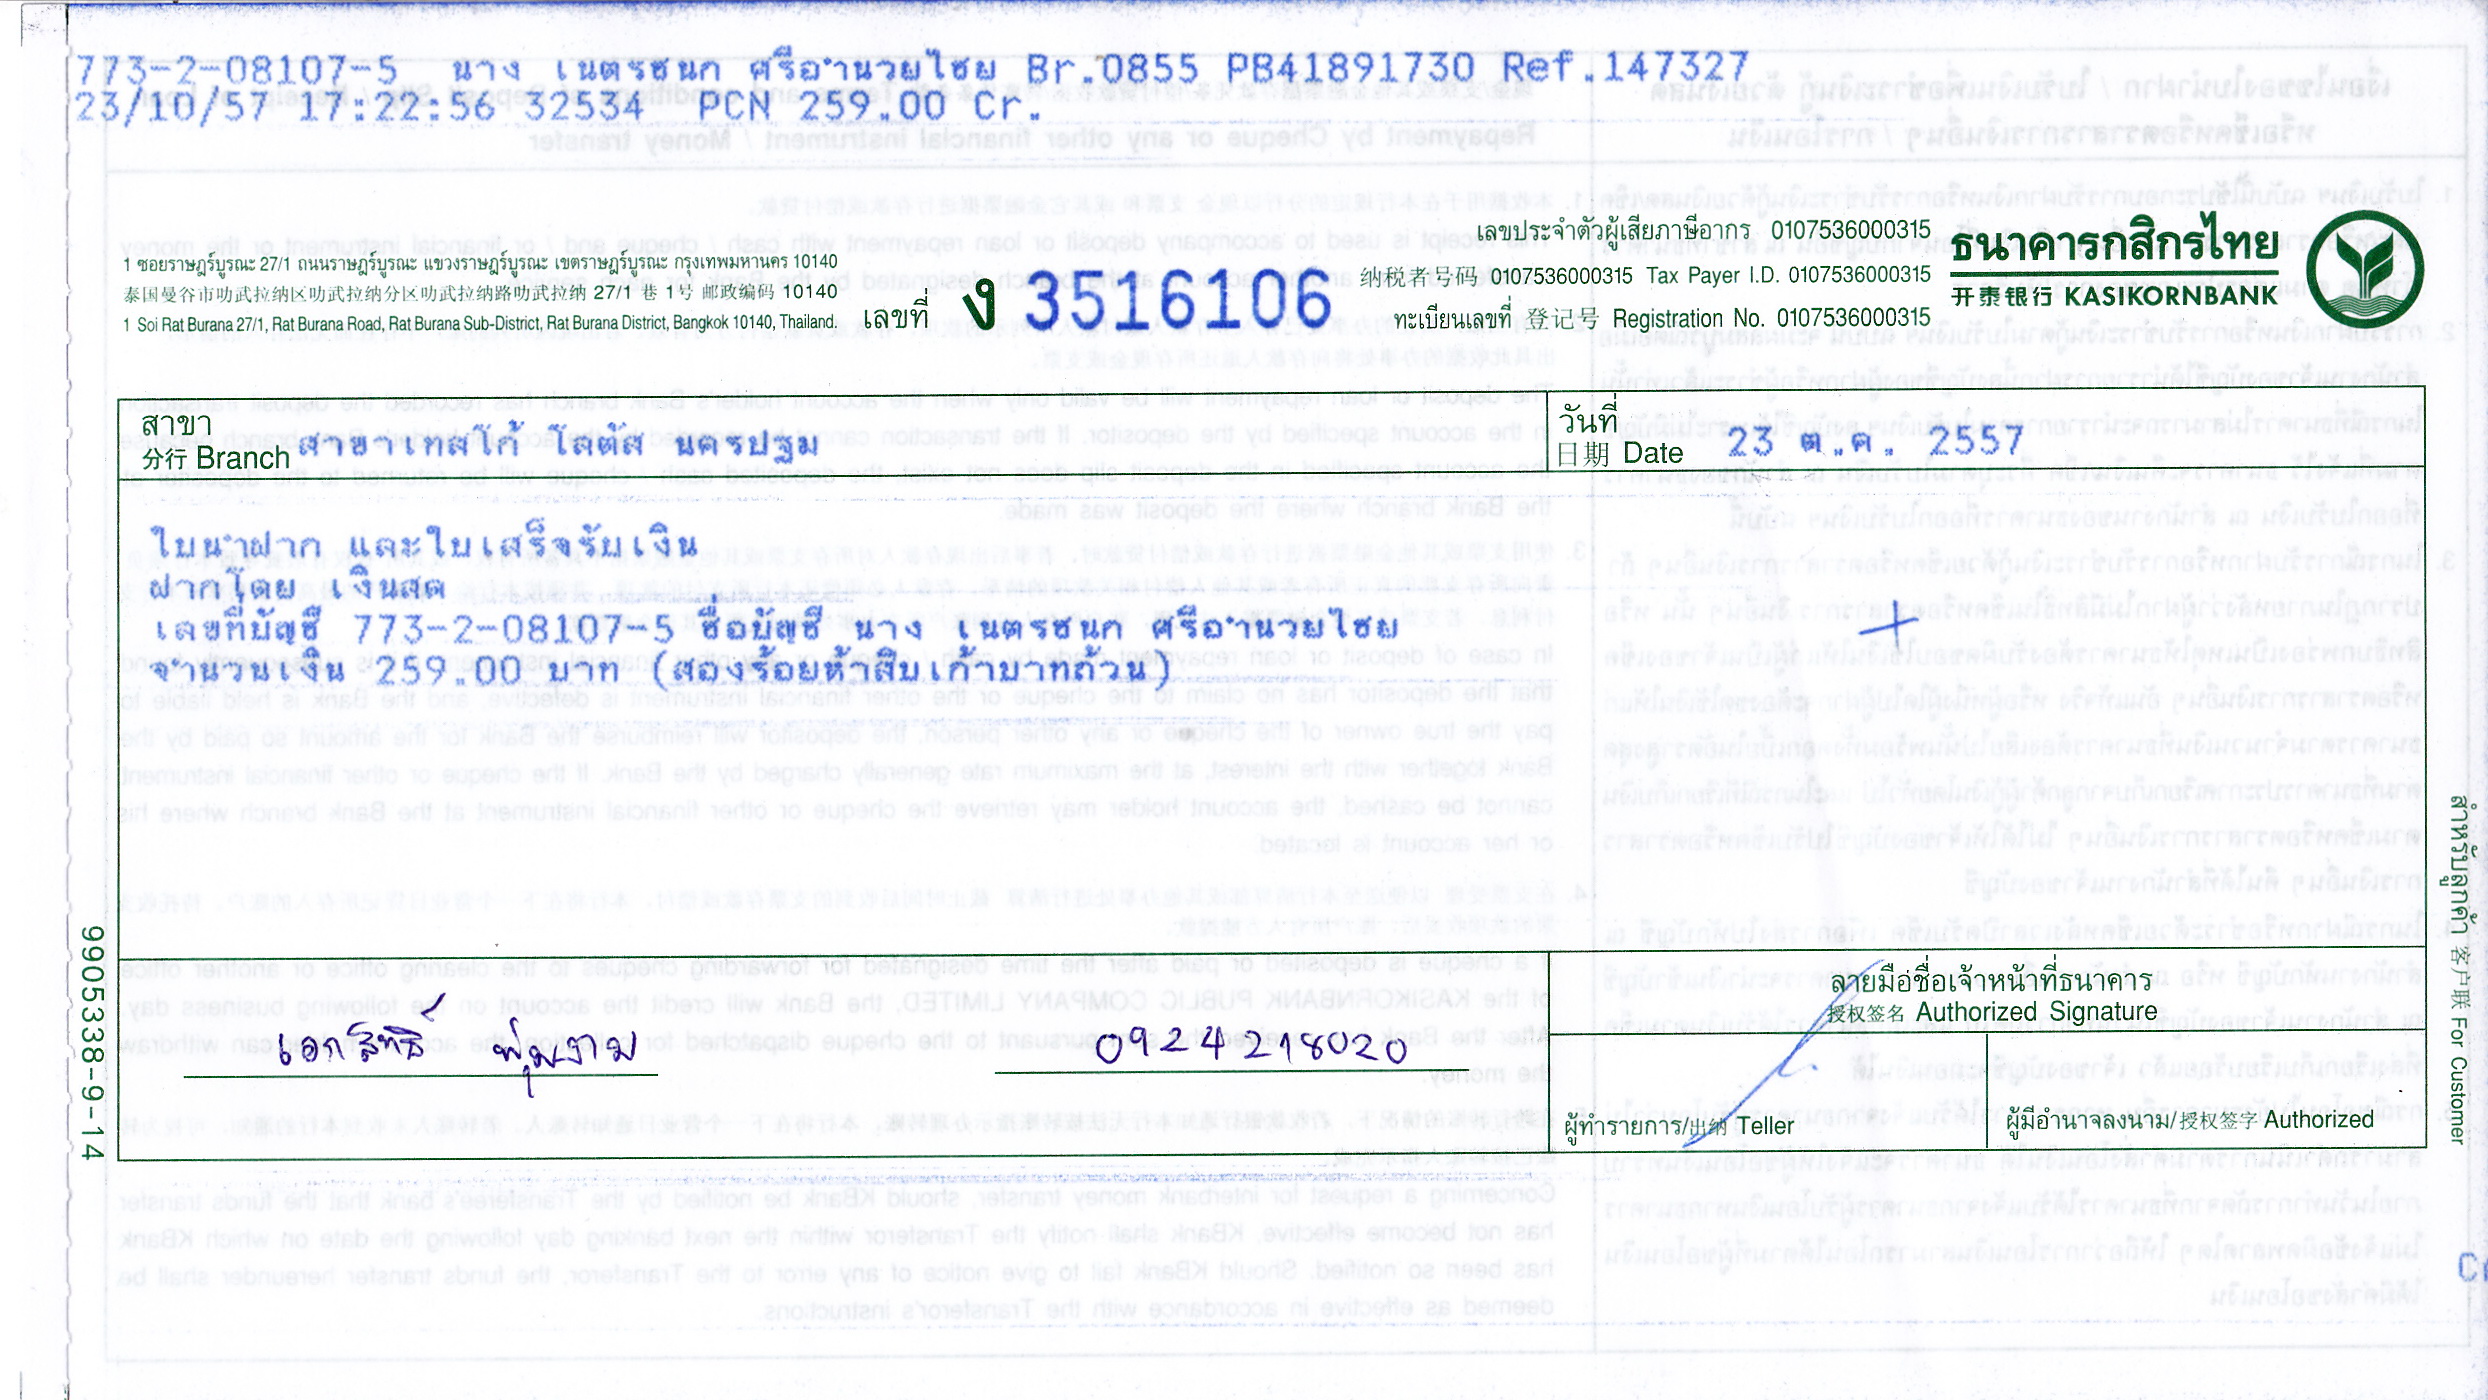 773-2-08107-5 นาง เนตรชนก ศรีอำนวยไชย Br.0855 PB41891730 Ref.147327
23/10/57 17:22:56 32534 PCN 259.00 Cr.
1 ซอยราษฎร์บูรณะ 27/1 ถนนราษฎร์บูรณะ แขวงราษฎร์บูรณะ เขตราษฎร์บูรณะ กรุงเทพมหานคร 10140
泰国曼谷市叻武拉纳区叻武拉纳分区叻武拉纳路叻武拉纳 27/1 巷 1号 邮政编码 10140
1 Soi Rat Burana 27/1, Rat Burana Road, Rat Burana Sub-District, Rat Burana District, Bangkok 10140, Thailand.
เลขที่ ง 3516106
เลขประจำตัวผู้เสียภาษีอากร 0107536000315
纳税者号码 0107536000315 Tax Payer I.D. 0107536000315
ทะเบียนเลขที่ 登记号 Registration No. 0107536000315
ธนาคารกสิกรไทย
开泰银行 KASIKORNBANK
สาขา
分行 Branch สาขาเทสโก้ โลตัส นครปฐม
วันที่
日期 Date 23 ต.ค. 2557
ใบนำฝาก และใบเสร็จรับเงิน
ฝากโดย เงินสด
เลขที่บัญชี 773-2-08107-5 ชื่อบัญชี นาง เนตรชนก ศรีอำนวยไชย
จำนวนเงิน 259.00 บาท (สองร้อยห้าสิบเก้าบาทถ้วน)
เอกสิทธิ์ พุ่มงาม
0924218020
ลายมือชื่อเจ้าหน้าที่ธนาคาร
授权签名 Authorized Signature
ผู้ทำรายการ/出纳 Teller
ผู้มีอำนาจลงนาม/授权签字 Authorized
99053338-9-14
สำหรับลูกค้า 客户联 For Customer